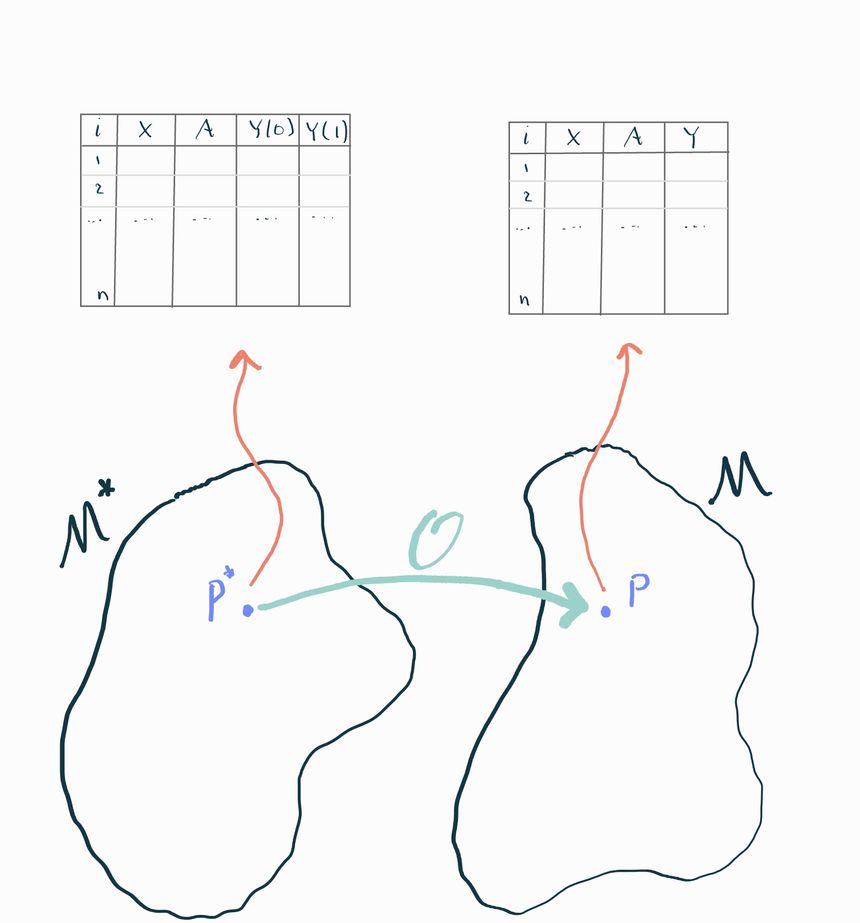 i X A Y(0) Y(1)
1
2
... ... ... ... ...
n
i X A Y
1
2
... ... ... ...
n
M*
M
O
P*
P